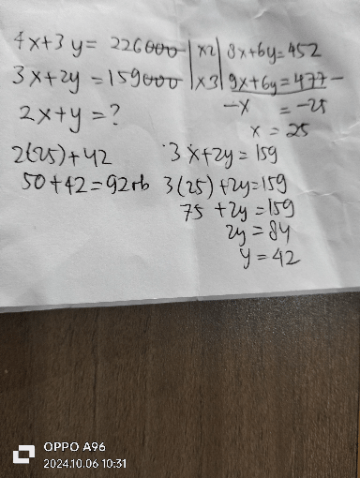 4x+3y= 226000 |x2| 8x+6y=452
3x+2y =159000 |x3| 9x+6y=477 -
-x = -25
2x+y=?
x = 25
2(25)+42
50+42=92rb
3x+2y=159
3(25) +2y=159
75 +2y=159
2y=84
y=42
OPPO A96
2024.10.06 10:31